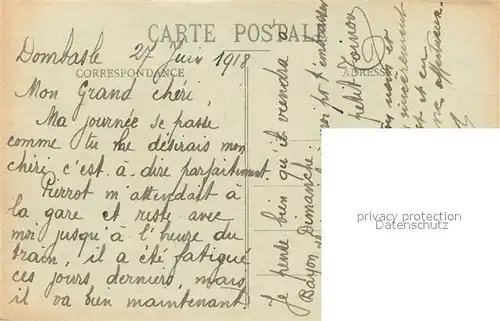 CARTE POSTALE
Dombasle 27 Juin 1918
CORRESPONDANCE
ADRESSE
Mon Grand chéri,
Ma journée se passe
comme tu le désirais mon
chéri c'est à dire parfaitement.
Pierrot m'attendait à
la gare et reste avec
moi jusqu'à l'heure du
train, il a été fatigué
ces jours derniers, mais
il va bien maintenant.
Je pense bien qu'il viendra à
Bayon Dimanche
t'embrasser
petit
sincèrement
et en
privacy protection
Datenschutz